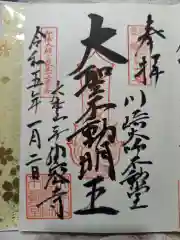 奉拝
川崎大師不動堂
大聖不動明王
大本山平間寺
令和五年一月二日